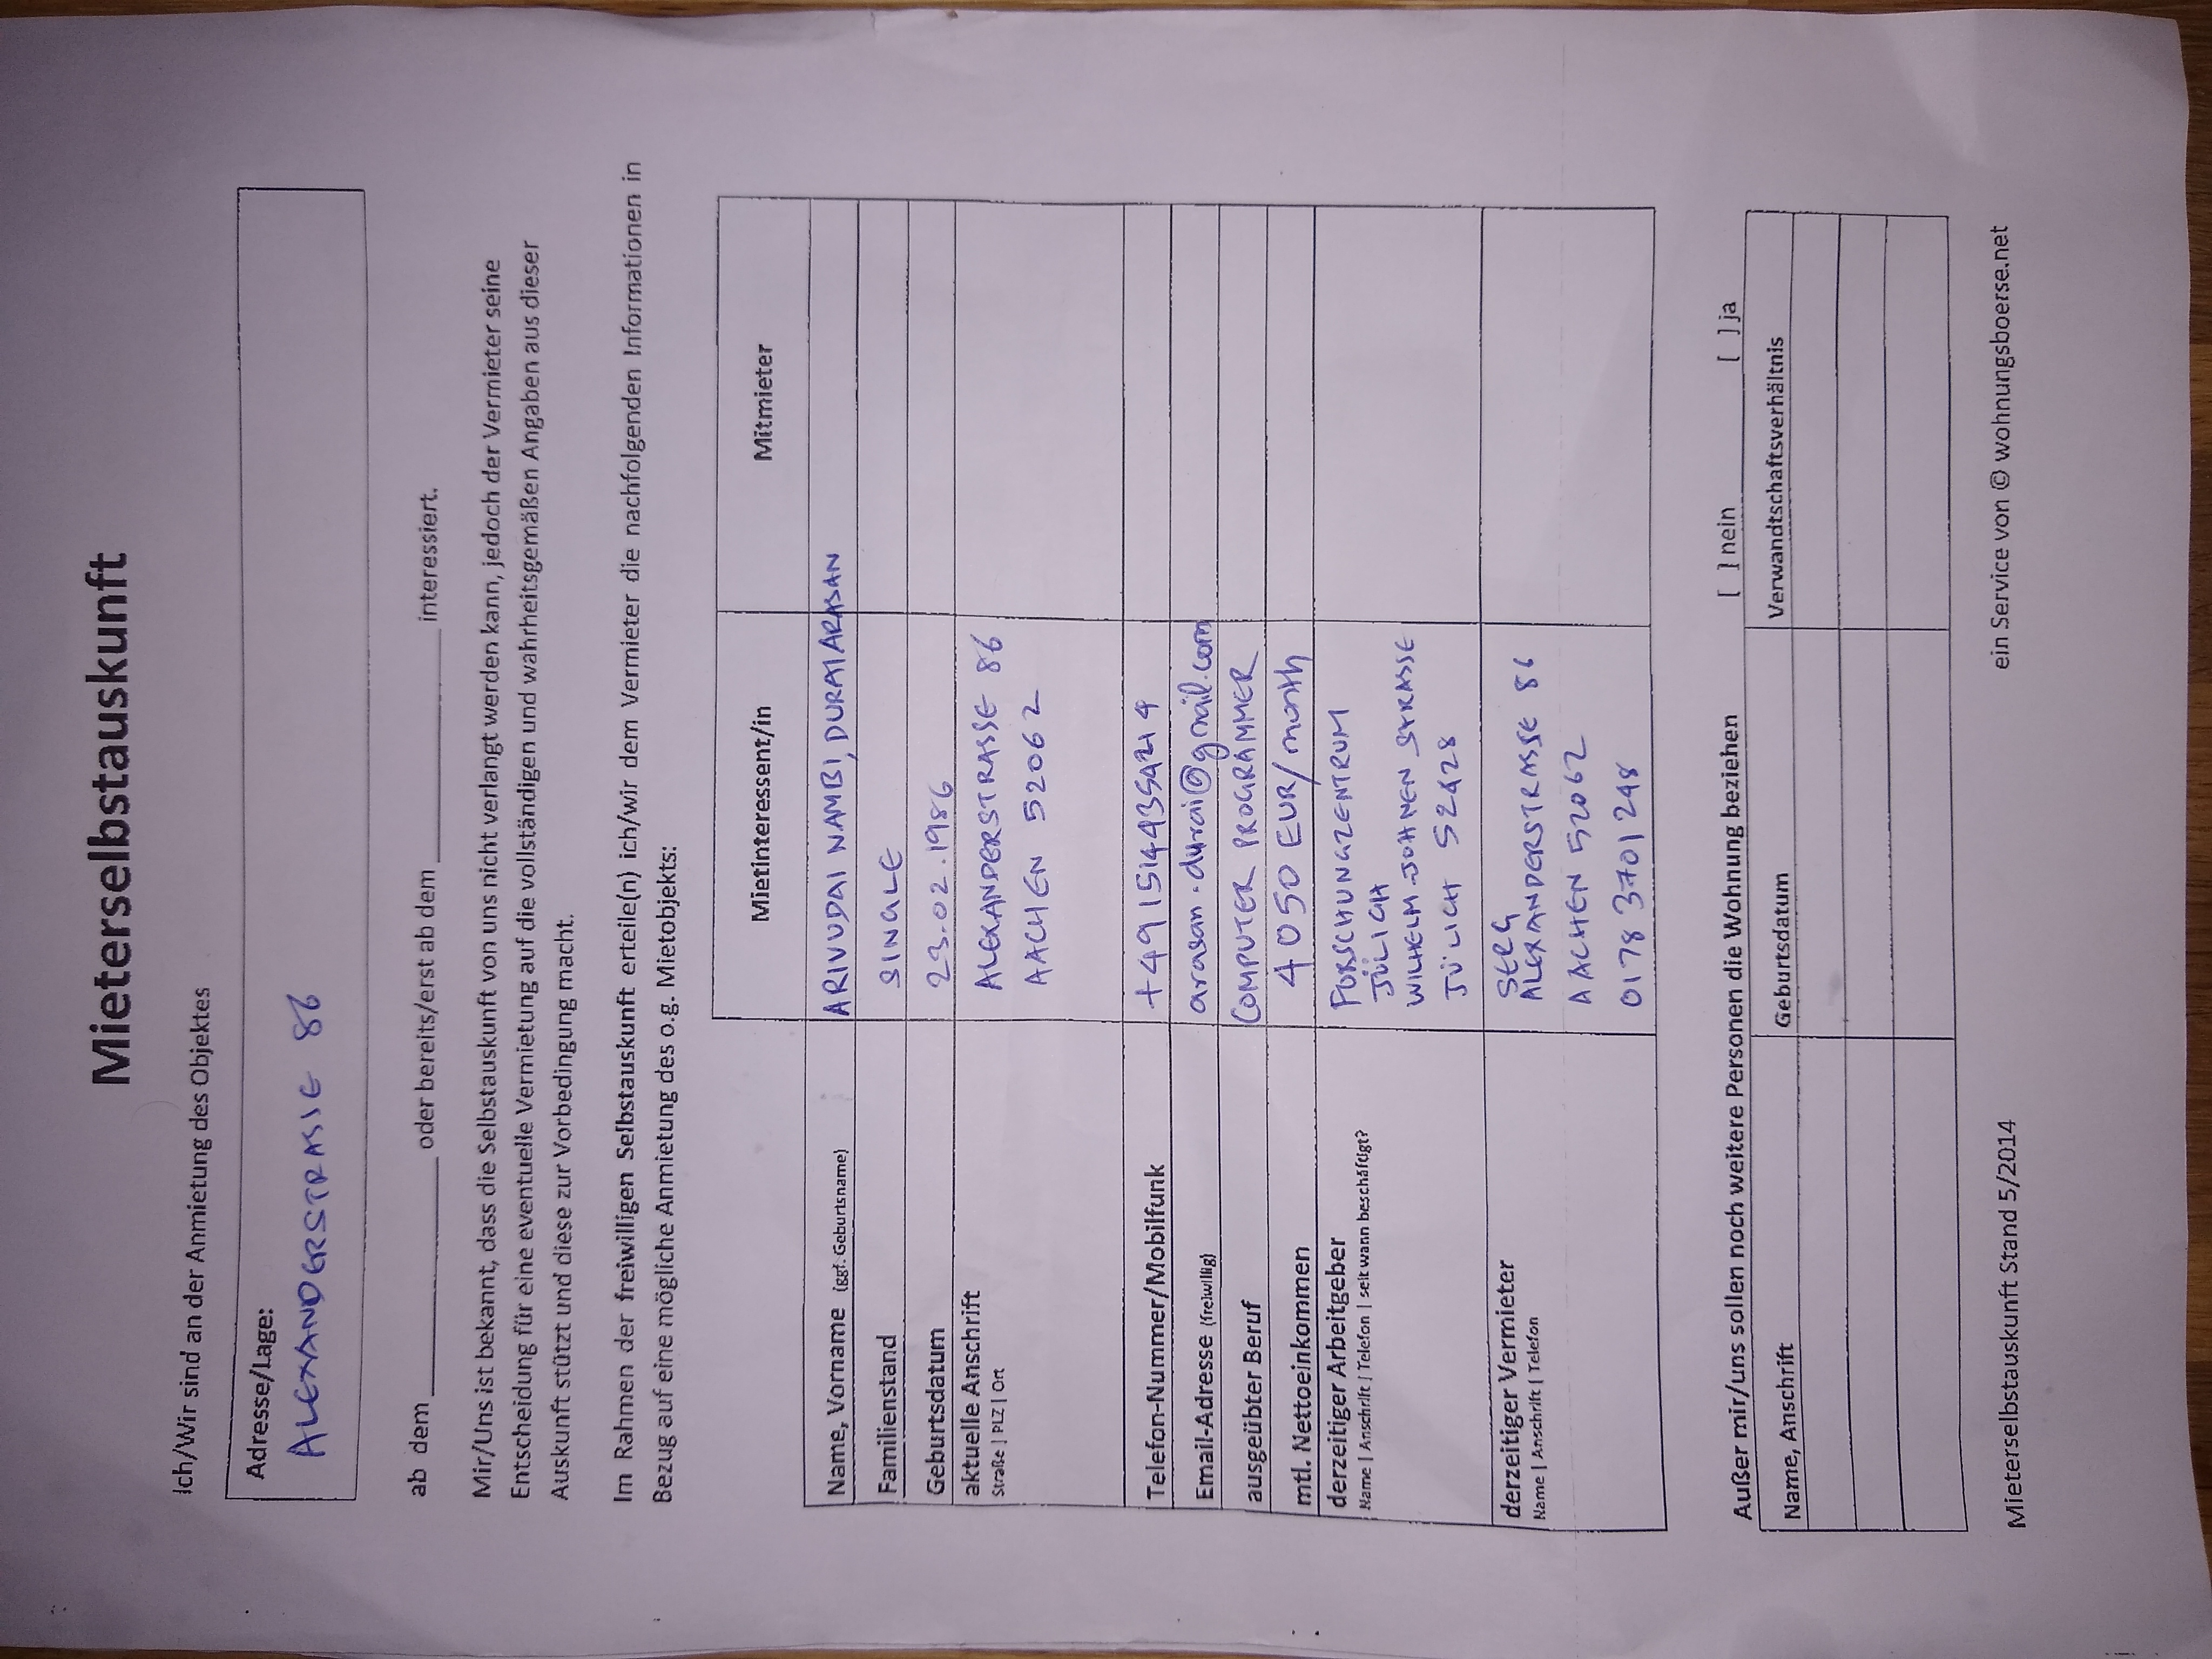 Mieterselbstauskunft
Ich/Wir sind an der Anmietung des Objektes
Adresse/Lage:
ALEXANDERSTRASSE 86
ab dem ______________ oder bereits/erst ab dem ______________ interessiert.
Mir/Uns ist bekannt, dass die Selbstauskunft von uns nicht verlangt werden kann, jedoch der Vermieter seine
Entscheidung für eine eventuelle Vermietung auf die vollständigen und wahrheitsgemäßen Angaben aus dieser
Auskunft stützt und diese zur Vorbedingung macht.
Im Rahmen der freiwilligen Selbstauskunft erteile(n) ich/wir dem Vermieter die nachfolgenden Informationen in
Bezug auf eine mögliche Anmietung des o.g. Mietobjekts:
Mietinteressent/in Mitmieter
Name, Vorname (ggf. Geburtsname) ARIVUDAI NAMBI, DURAIARASAN
Familienstand SINGLE
Geburtsdatum 23.02.1986
aktuelle Anschrift ALEXANDERSTRASSE 86
Straße | PLZ | Ort AACHEN 52062
Telefon-Nummer/Mobilfunk
Email-Adresse (freiwillig) arasan.durai@gmail.com
ausgeübter Beruf COMPUTER PROGRAMMER
mtl. Nettoeinkommen 4050 EUR/month
derzeitiger Arbeitgeber FORSCHUNGZENTRUM
Name | Anschrift | Telefon | seit wann beschäftigt? JÜLICH
WILHELM-JOHNEN STRASSE
JÜLICH 52428
derzeitiger Vermieter
Name | Anschrift | Telefon ALEXANDERSTRASSE 86
AACHEN 52062
0178 3701248
Außer mir/uns sollen noch weitere Personen die Wohnung beziehen [ ] nein [ ] ja
Name, Anschrift Geburtsdatum Verwandtschaftsverhältnis
Mieterselbstauskunft Stand 5/2014 ein Service von © wohnungsboerse.net